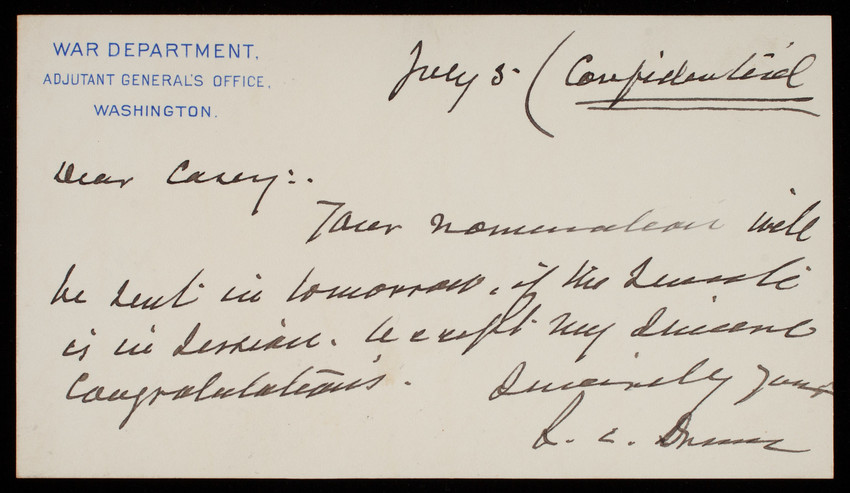 WAR DEPARTMENT,
ADJUTANT GENERAL'S OFFICE,
WASHINGTON.
July 5 (Confidential
Dear Casey:.
Your nomination will
be sent in tomorrow, if the Senate
is in session. Accept my sincere
Congratulations.
Sincerely yours
R. C. Drum